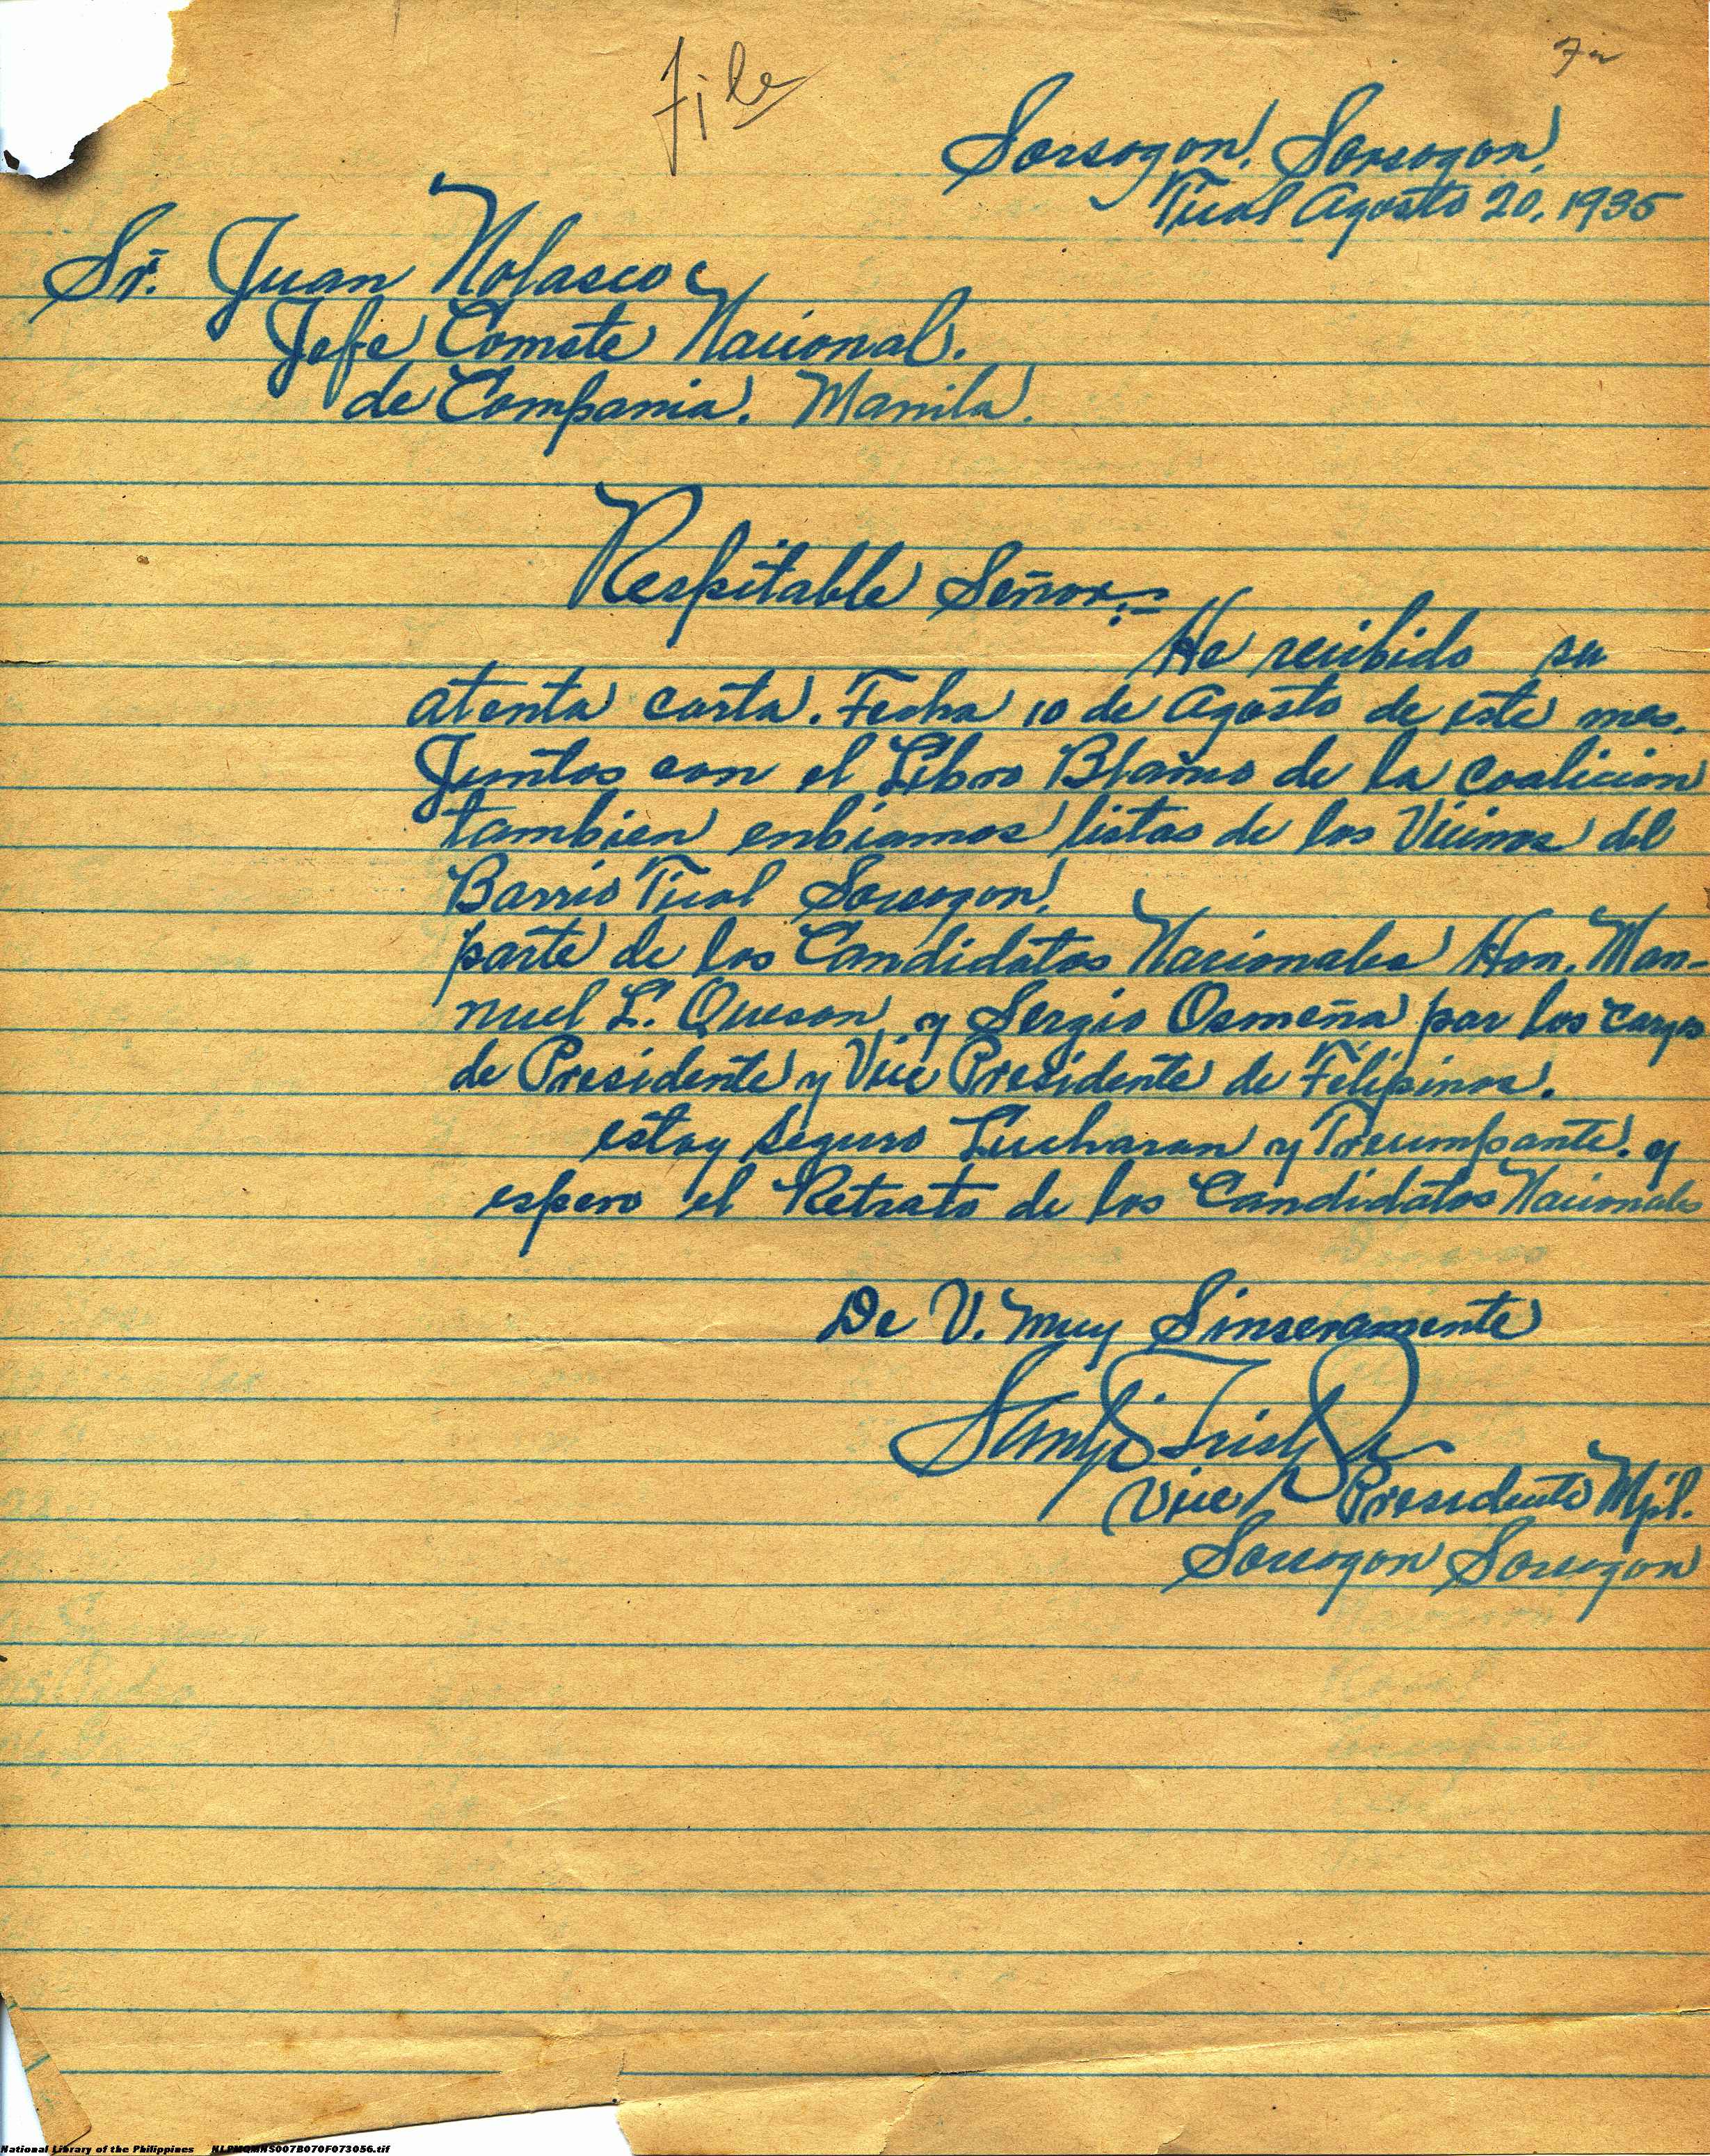 File
Sorsogon, Sorsogon,
Ticol Agosto 20, 1935
Sr. Juan Nolasco
Jefe Comete Nacional.
de Compania. Manila.
Respitable Señor:-
He recibido su
atenta carta. Fecha 10 de Agosto de este mes.
Juntos con el Libro Blanco de la Coalicion
tambien enbiamos listas de los Vicinos del
Barrio Ticol Sorsogon,
parte de los Candidatos Nacionales Hon. Man-
nuel L. Queson, y Sergio Osmeña por los cargos
de Presidente y Vice Presidente de Filipinas.
estoy seguro Lucharan y Treumpante. y
espero el Retrato de los Candidatos Nacionales
De V. Muy Sinseramente
Vice Presidente Mpl.
Sorsogon Sorsogon
National Library of the Philippines NLPMQMNS007B070F073056.tif